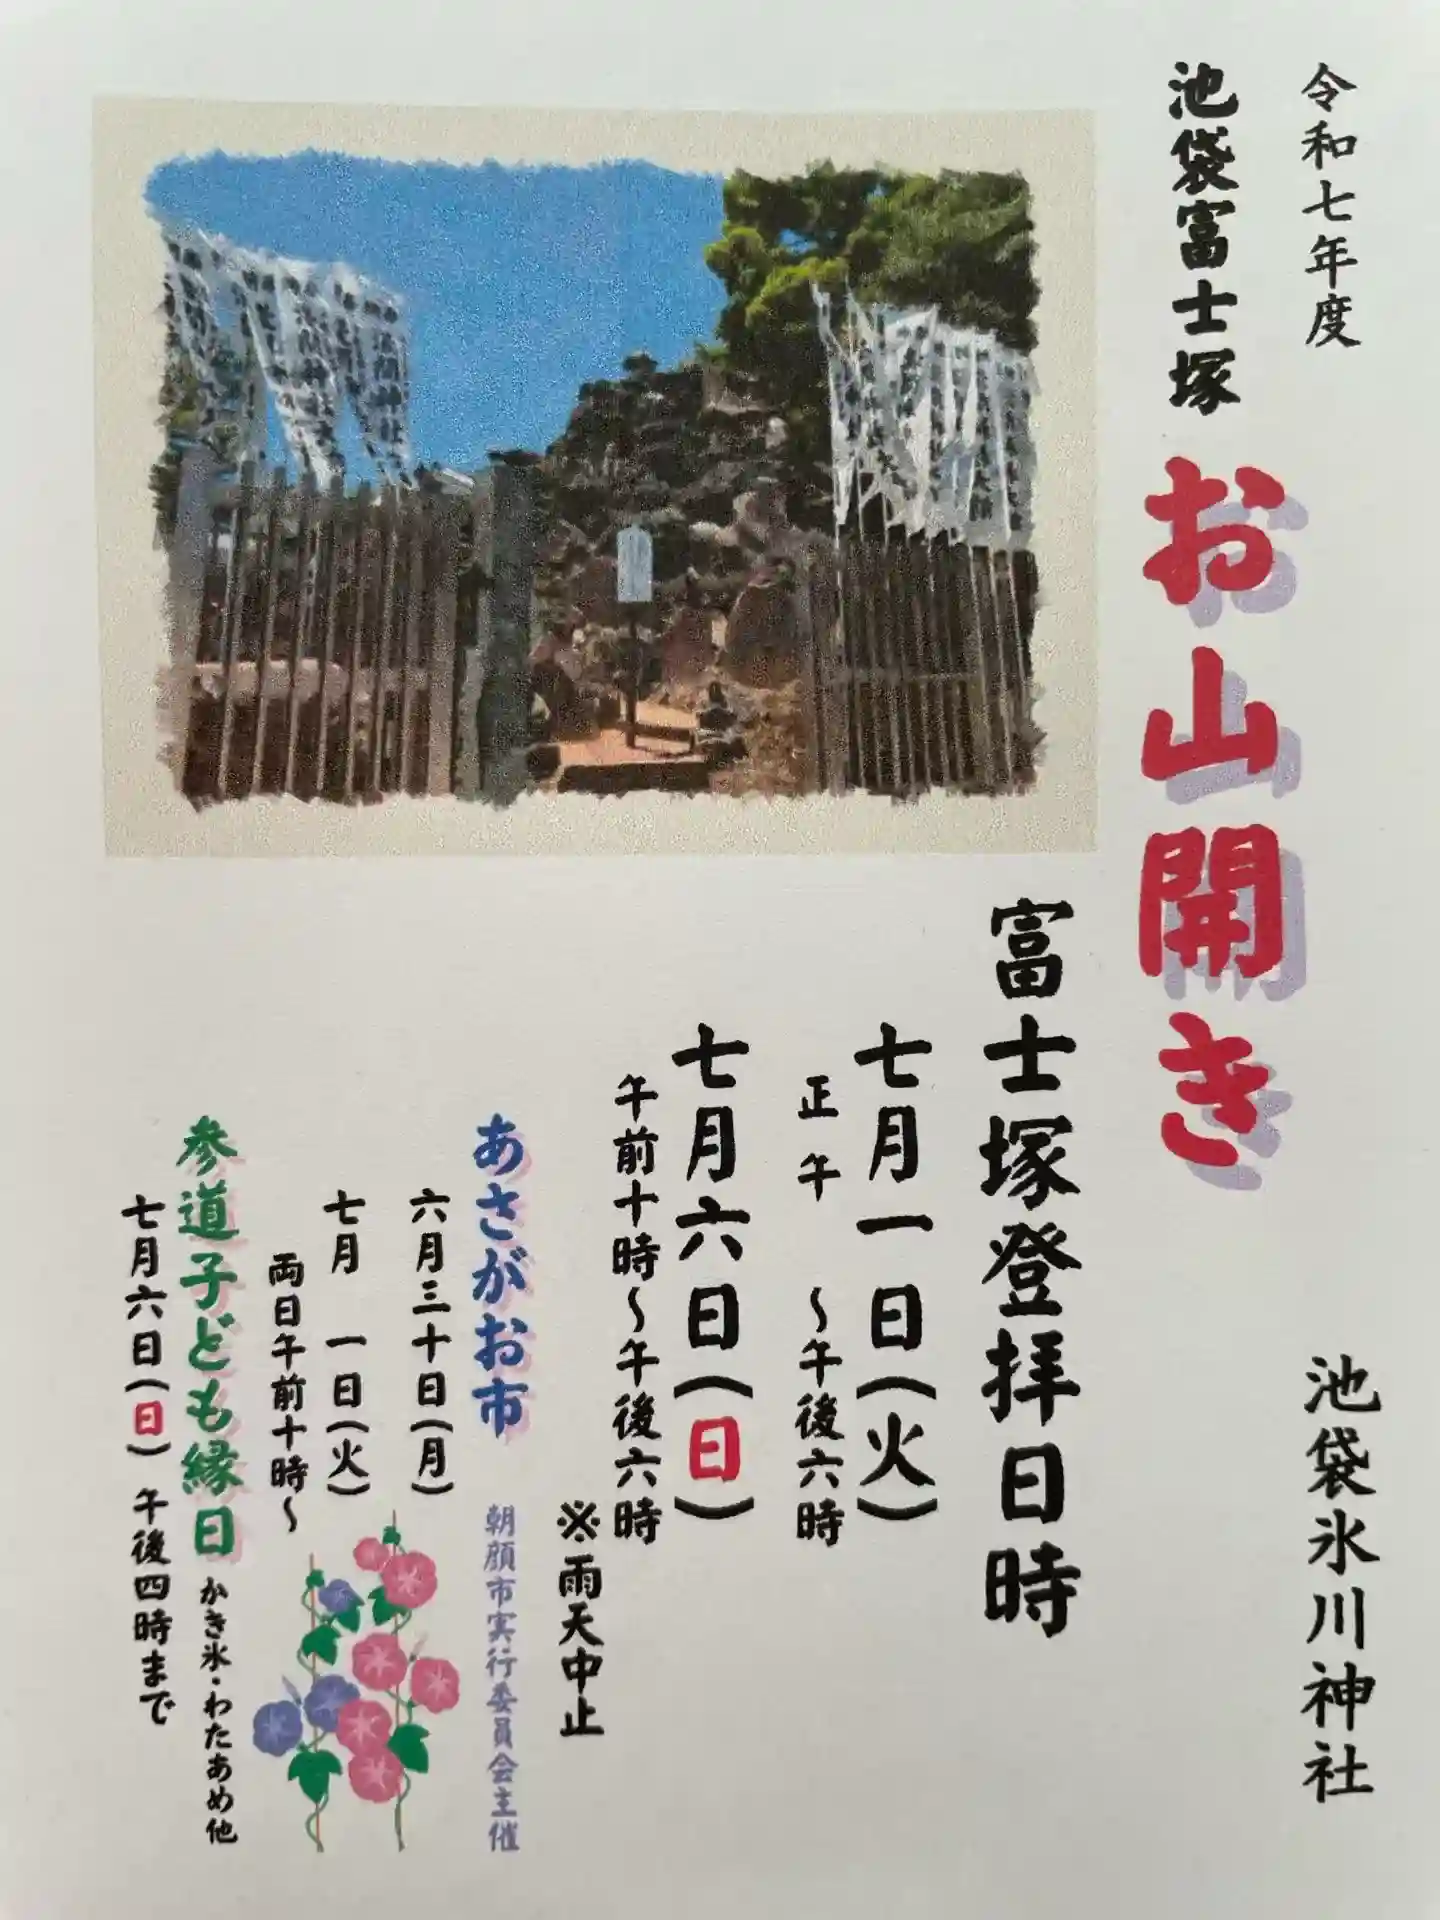 令和七年度
池袋富士塚 お山開き
池袋氷川神社
富士塚登拝日時
七月一日(火)
正午 ～午後六時
七月六日(日)
午前十時～午後六時
※雨天中止
あさがお市 朝顔市実行委員会主催
六月三十日(月)
七月 一日(火)
両日午前十時～
参道子ども縁日 かき氷・わたあめ他
七月六日(日) 午後四時まで